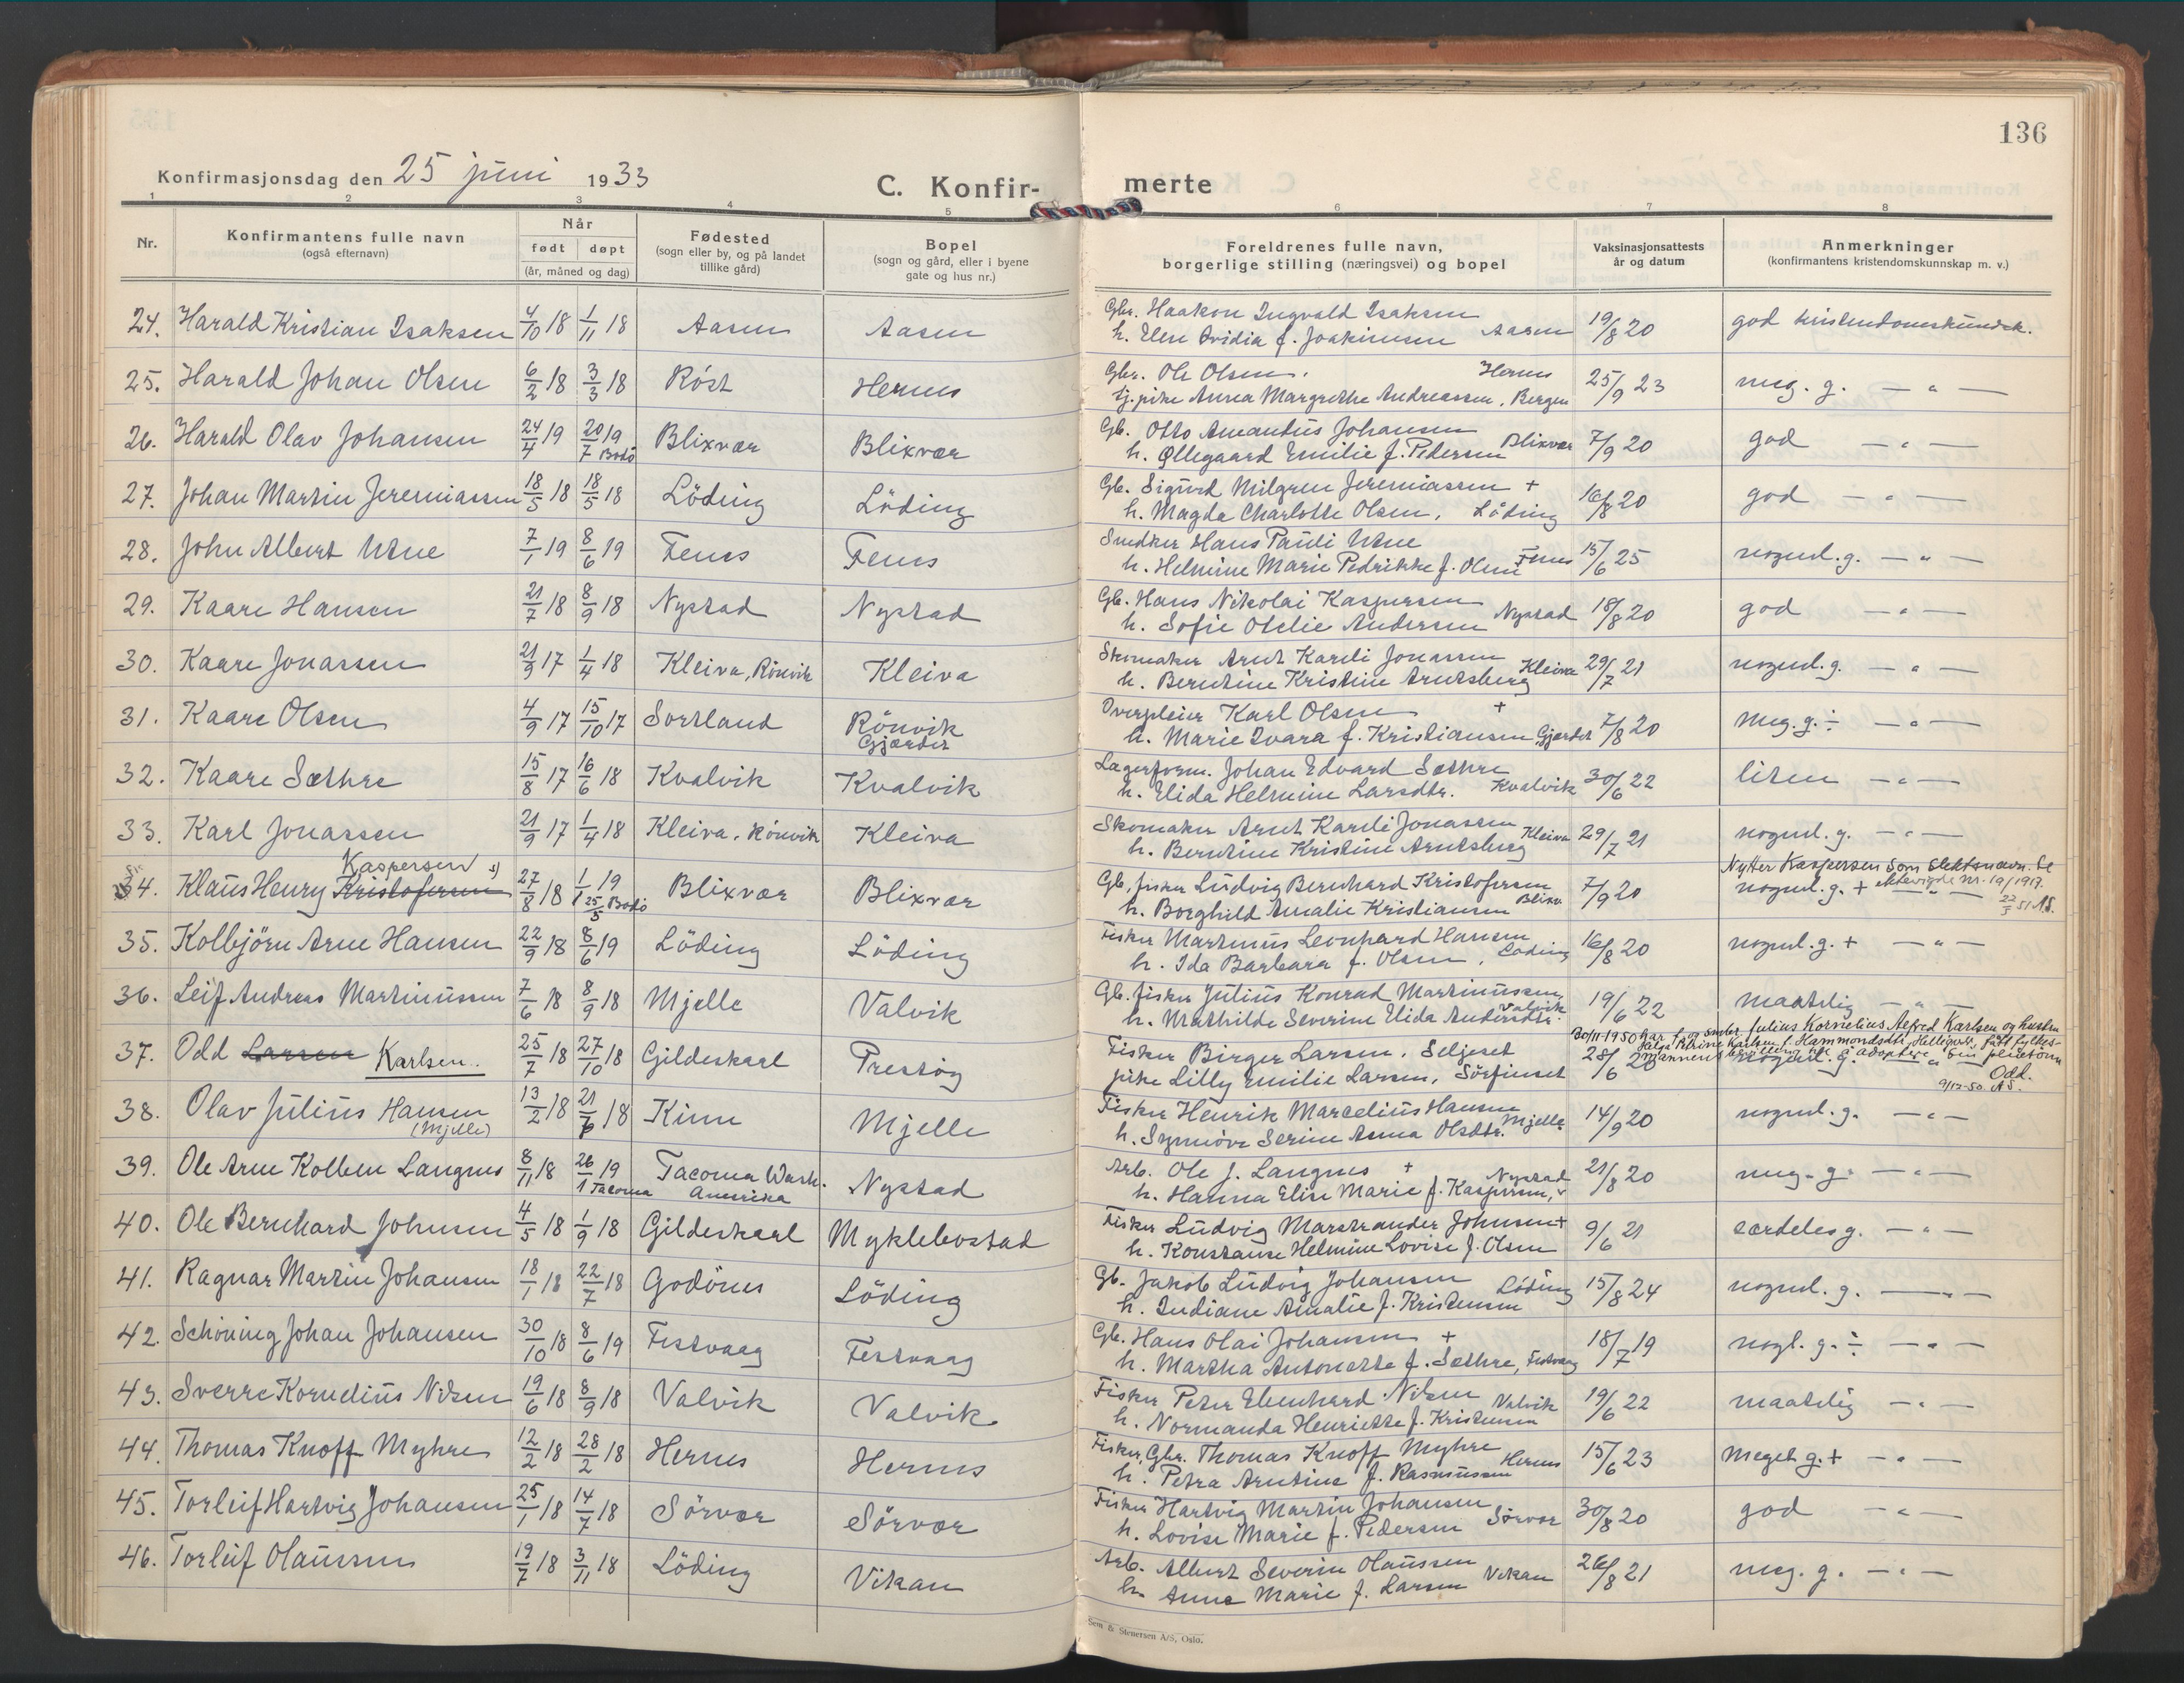 136
Konfirmasjonsdag den 25 juni 1933
C. Konfir-
merte
1 2 3 4 5 6 7 8
Nr.
Konfirmantens fulle navn
(også efternavn)
Når
født døpt
(år, måned og dag)
Fødested
(sogn eller by, og på landet
tillike gård)
Bopel
(sogn og gård, eller i byene
gate og hus nr.)
Foreldrenes fulle navn,
borgerlige stilling (næringsvei) og bopel
Vaksinasjonsattests
år og datum
Anmerkninger
(konfirmantens kristendomskunnskap m. v.)
24. Harald Kristian Isaksen 4/10 18 1/11 18 Aasen Aasen Gbr. Haakon Ingvald Isaksen
h. Elen Ovidia f. Joakimsen Aasen 19/8 20 god kristendomskunsk.
25. Harald Johan Olsen 6/2 18 3/3 18 Röst Hernes Gbr. Ole Olsen. Hernes
tj.pike Anna Margrethe Andreassen, Bergen 25/9 23 meg. g. — " —
26. Harald Olav Johansen 24/4 19 20/7 19 Bodö Blixvær Blixvær Gb. Otto Amantus Johansen
h. Øllegaard Emilie f. Pedersen Blixvær 7/9 20 god — " —
27. Johan Martin Jeremiassen 18/5 18 18/5 18 Löding Löding Gb. Sigurd Milgren Jeremiassen +
h. Magda Charlotte Olsen, Löding 16/8 20 god — " —
28. John Albert Utne 7/1 19 8/6 19 Fenes Fenes Snedker Hans Pauli Utne
h. Helmine Marie Pedrikke f. Olsen Fenes 15/6 25 nogenl. g. — " —
29. Kaare Hansen 21/7 18 8/9 18 Nystad Nystad Gb. Hans Nikolai Kaspersen
h. Sofie Otelie Andersen Nystad 18/8 20 god — " —
30. Kaare Jonassen 21/9 17 1/4 18 Kleiva, Rönvik Kleiva Skomaker Arnt Kareli Jonassen
h. Berntine Kristine Arntsberg Kleiva 29/7 21 nogenl. g. — " —
31. Kaare Olsen 4/9 17 15/10 17 Sortland Rönvik
Gjærdet Overpleier Karl Olsen +
h. Marie Ivara f. Kristiansen, Gjærdet 7/8 20 meg. g. ÷ — " —
32. Kaare Sæthre 15/8 17 16/6 18 Kvalvik Kvalvik Lagerform. Johan Edvard Sæthre
h. Elida Helmine Larsdtr. Kvalvik 30/6 22 liten — " —
33. Karl Jonassen 21/9 17 1/4 18 Kleiva, Rönvik Kleiva Skomaker Arnt Kareli Jonassen
h. Berntine Kristine Arntsberg Kleiva 29/7 21 nogenl. g. — " —
Kaspersen 1)
34. Klaus Henry Kristofersen 27/8 18 1/1 19 25/5 Bodö Blixvær Blixvær Gb, fisker Ludvig Bernhard Kristofersen
h. Borghild Amalie Kristiansen Blixv. 7/9 20 Nytter Kaspersen som slektsnavn. Se
ektevigde nr. 19/1917.
nogenl. g. + — " — 22/5 51 AS.
35. Kolbjörn Arne Hansen 22/9 18 8/6 19 Löding Löding Fisker Martinus Leonhard Hansen
h. Ida Barbara f. Olsen, Löding 16/8 20 nogenl. g. + — " —
36. Leif Andreas Martinussen 7/6 18 8/9 18 Mjelle Valvik Gb. fisker Julius Konrad Martinussen,
h. Mathilde Severine Elida Andersdtr. Valvik 19/6 22 maatelig — " —
37. Odd Larsen Karlsen. 25/7 18 27/10 18 Gildeskaal Prestöy Fisker Birger Larsen, Seljeset
pike Lilly Emilie Larsen, Sörfinset 28/6 20 nogenl. g. — " —
30/11-1950 har Julius Kornelius Alfred Karlsen og hustru
Karlsen f. Hammondsdtr, fått fylkes-
mannens bevilling til å adoptere sin pleiesönn
Odd.
9/12-50. AS.
38. Olav Julius Hansen
(Mjelle) 13/2 18 21/7 18 Kinn Mjelle Fisker Henrik Marcelius Hansen
h. Synnöve Serine Anna Olsdtr. Mjelle 14/9 20 nogenl. g. — " —
39. Ole Arne Kolben Langnes 8/11 18 26/1 19 Tacoma Tacoma Wash.
Amerika Nystad Arb. Ole J. Langnes +
h. Hanna Elise Marie f. Kaspersen, Nystad 21/8 20 meg. g. — " —
40. Ole Bernhard Johnsen 4/5 18 1/9 18 Gildeskaal Myklebostad Fisker Ludvig Marstrander Johnsen +
h. Konstanse Helmine Lovise f. Olsen 9/6 21 særdeles g. — " —
41. Ragnar Martin Johansen 18/1 18 22/7 18 Godönes Löding Gb. Jakob Ludvig Johansen Löding
h. Indiane Amalie f. Kristensen 15/8 24 nogenl. g. — " —
42. Schöning Johan Johansen 30/10 18 8/6 19 Festvaag Festvaag Gb. Hans Olai Johansen +
h. Martha Antonette f. Sæthre, Festvaag 18/7 19 nogl. g. ÷ — " —
43. Sverre Kornelius Nilsen 19/6 18 8/9 18 Valvik Valvik Fisker Peter Ebenhard Nilsen Valvik
h. Normanda Henriette f. Kristensen 19/6 22 maatelig — " —
44. Thomas Knoff Myhre 12/2 18 28/2 18 Hernes Hernes Fisker, Gbr. Thomas Knoff Myhre
h. Petra Arntine f. Rasmussen Hernes 15/6 23 Meget g. + — " —
45. Torleif Hartvig Johansen 25/1 18 14/7 18 Sörvær Sörvær Fisker Hartvig Martin Johansen
h. Lovise Marie f. Pedersen Sörvær 30/8 20 god — " —
46. Torleif Olaussen 19/7 18 3/11 18 Löding Vikan Arb. Albert Severin Olaussen
h. Anna Marie f. Larsen Vikan 26/8 21 meg. g. — " —
Sem & Stenersen A/S, Oslo.